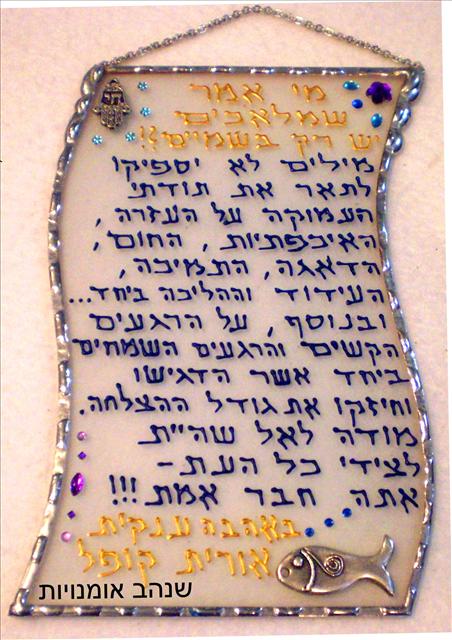 מי אמר
שמלאכים
יש רק בשמיים!!
מילים לא יספיקו
לתאר את תודתי
העמוקה על העזרה,
האיכפתיות, החום,
הדאגה, התמיכה,
העידוד וההליכה ביחד...
ובנוסף, על הרגעים
הקשים והרגעים השמחים
ביחד אשר הדגישו
וחיזקו את גודל ההצלחה.
מודה לאל שהיית
לצידי כל העת-
אתה חבר אמת!!!
באהבה ענקית
אורית קופל
שנהב אומנויות